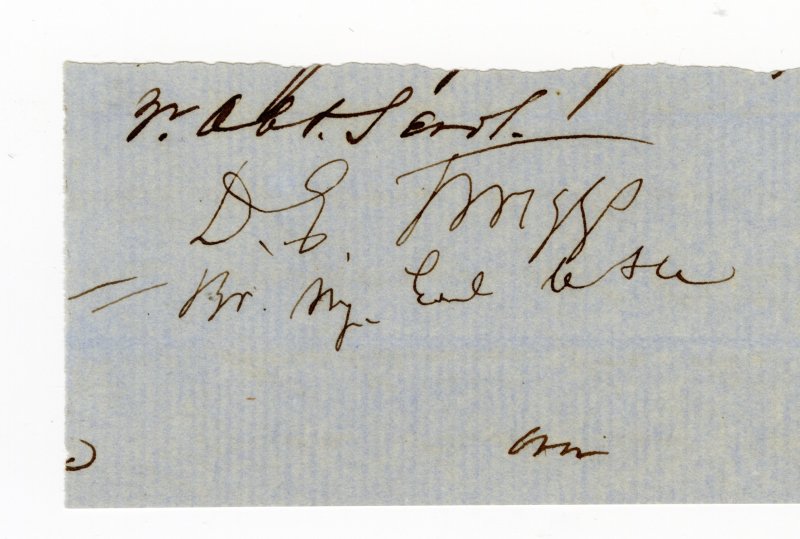 Yr. Obt. Servt.
D. E. Twiggs
Br. Mj. Genl U S A
over